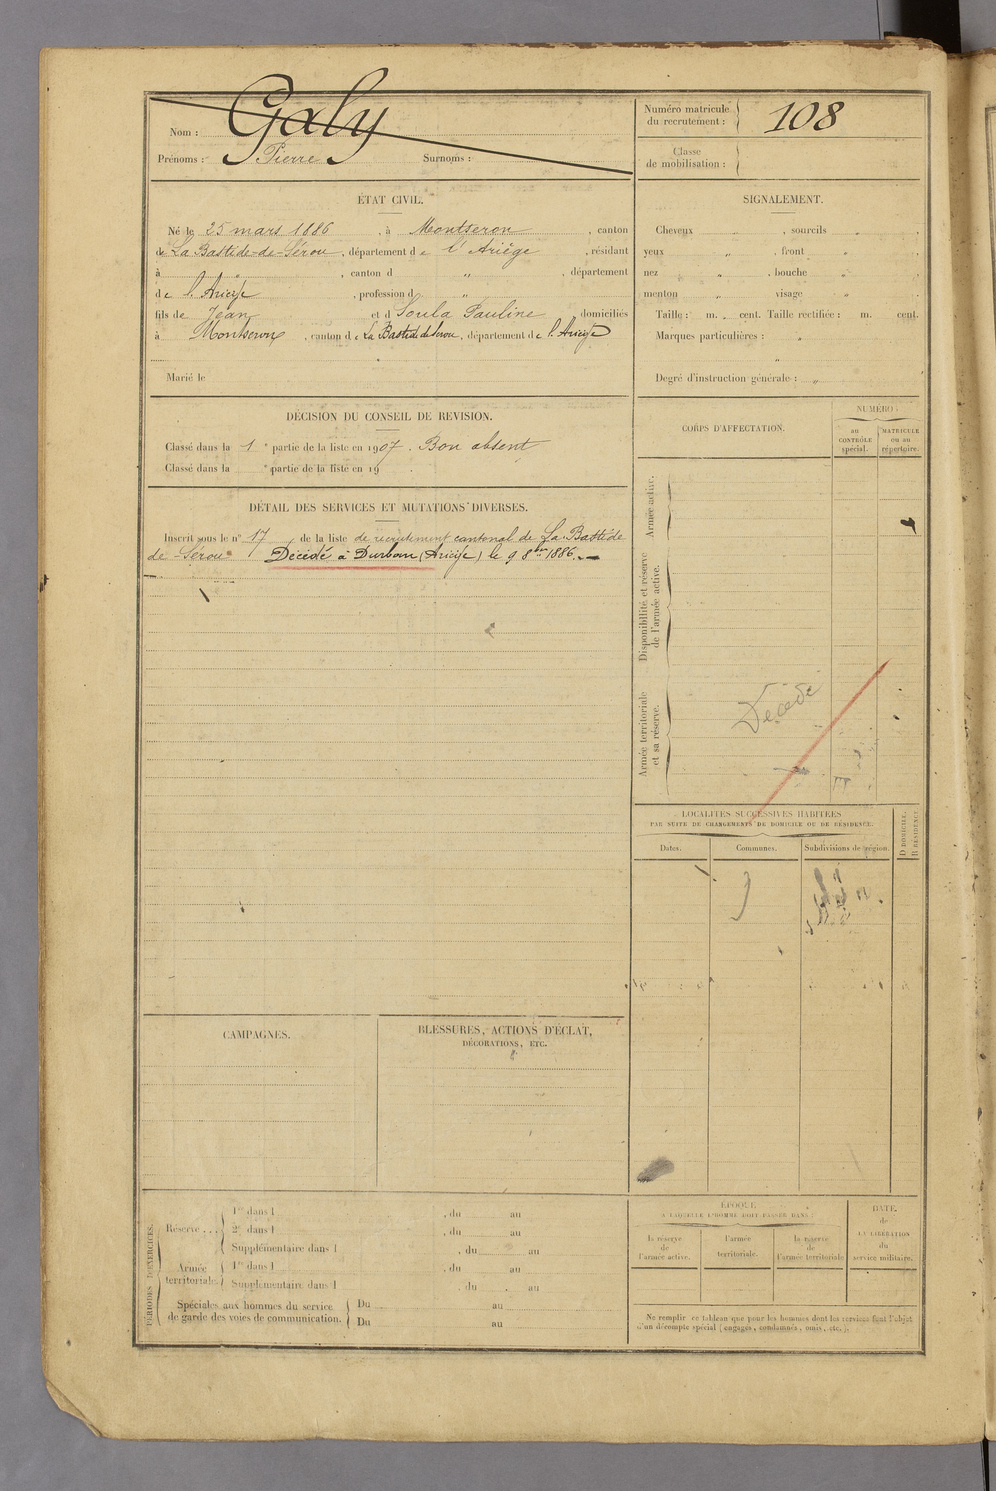 Nom : Galy
Prénoms : Pierre Surnoms :
Numéro matricule du recrutement : 108
Classe de mobilisation :
ÉTAT CIVIL.
Né le 25 mars 1886, à Montseron, canton
de La Bastide-de-Sérou, département de l'Ariège, résidant
à „, canton d „, département
de l'Ariège, profession d „
fils de Jean et d Soula Pauline domiciliés
à Montseron, canton de La Bastide de Sérou, département de l'Ariège
Marié le
SIGNALEMENT.
Cheveux „, sourcils „,
yeux „, front „,
nez „, bouche „,
menton „ visage „
Taille : m. cent. Taille rectifiée : m. cent.
Marques particulières : „
„
Degré d'instruction générale : „
DÉCISION DU CONSEIL DE REVISION.
Classé dans la 1e partie de la liste en 1907. Bon absent
Classé dans la e partie de la liste en 19 .
DÉTAIL DES SERVICES ET MUTATIONS DIVERSES.
Inscrit sous le n° 17 de la liste de recrutement cantonal de La Bastide
de Sérou Décédé à Durban (Ariège) le 9 8bre 1886.
CORPS D'AFFECTATION.
NUMÉRO :
au CONTRÔLE spécial.
MATRICULE ou au répertoire.
Armée active.
Disponibilité et réserve de l'armée active.
Armée territoriale et sa réserve.
Décédé
LOCALITÉS SUCCESSIVES HABITÉES
PAR SUITE DE CHANGEMENTS DE DOMICILE OU DE RÉSIDENCE.
Dates. Communes. Subdivisions de région.
D DOMICILE. R RÉSIDENCE.
CAMPAGNES.
BLESSURES, ACTIONS D'ÉCLAT,
DÉCORATIONS, ETC.
PÉRIODES D'EXERCICES.
Réserve...
1re dans l , du au
2e dans l , du au
Supplémentaire dans l , du au
Armée territoriale.
1re dans l , du au
Supplémentaire dans l , du au
Spéciales aux hommes du service
de garde des voies de communication.
Du au
Du au
ÉPOQUE
À LAQUELLE L'HOMME DOIT PASSER DANS :
la réserve de l'armée active.
l'armée territoriale.
la réserve de l'armée territoriale
DATE
de
LA LIBÉRATION
du
service militaire.
Ne remplir ce tableau que pour les hommes dont les services font l'objet
d'un décompte spécial (engagés, condamnés, omis, etc.).